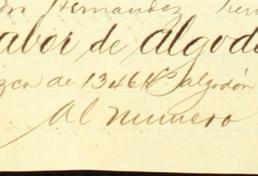 Hernandez
abor de algod
de 1346 Ko algodón
Al numero